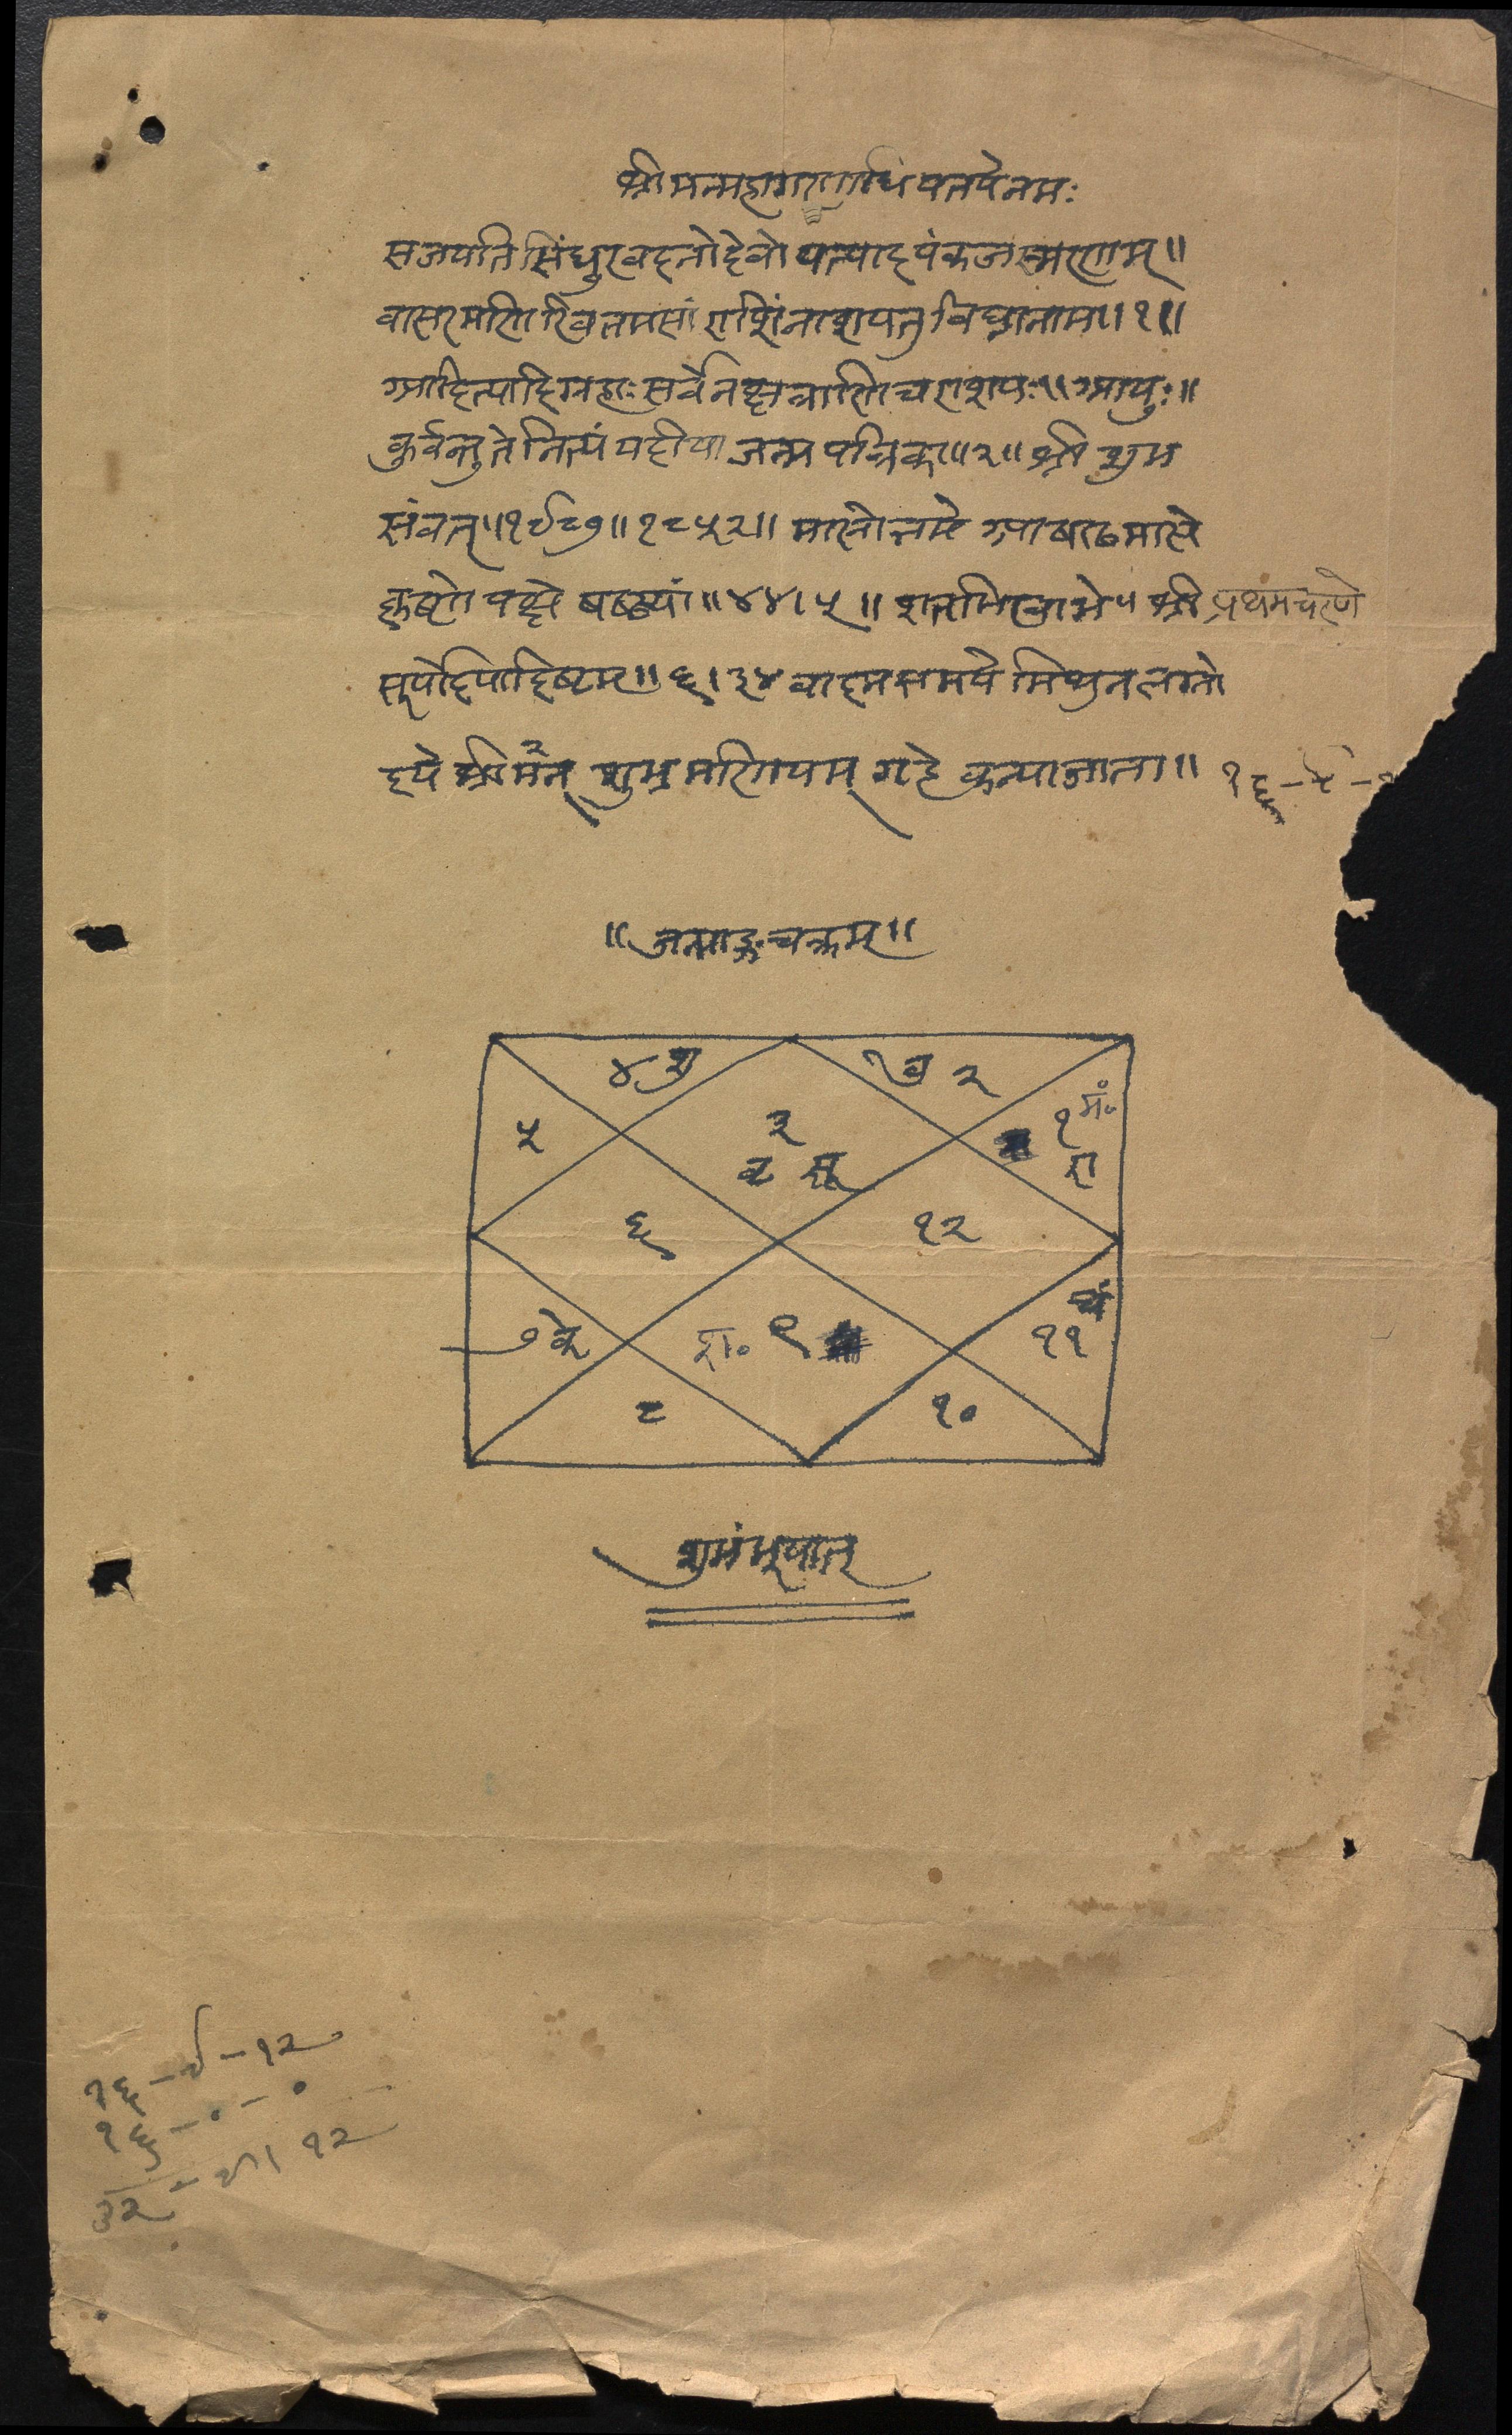 श्रीमन्महागणाधिपतयेनमः
सजयति सिंधुरवदनोदेवो यत्पादपंकजस्मरणाम्॥
वासरमणिरिवतमसां राशिंनाशयतु विघ्नानाम॥१॥
आदित्यादिग्रहाः सर्वेनक्षत्राणिचराशयः॥आयुः॥
कुर्वन्तु ते नित्यं यदीया जन्म पत्रिका॥२॥ श्री शुभ
संवत्॥१९८७॥१८५२॥ मासोत्तमे आषाढमासे
कृष्णे पक्षे षष्ठ्यां॥४४।५॥ शतभिखाभे ५ श्री प्रथमचरणे
सूर्योदियादिष्टम॥६।३४ वादनसमये मिथुन लग्नो
दये श्रीमन् शुभ्र मणियाम् गृहे कन्याजाता॥ १६-५-
॥जन्माङ्ग चक्रम्॥
४ शु
बु २
५
३
बृ सू
१ मं॰
रा
६
१२
७ के
श॰ ९
११ चं
८
१०
शुभंभूयात्
१६-९-१२
१६-०-०
३२-९।१२